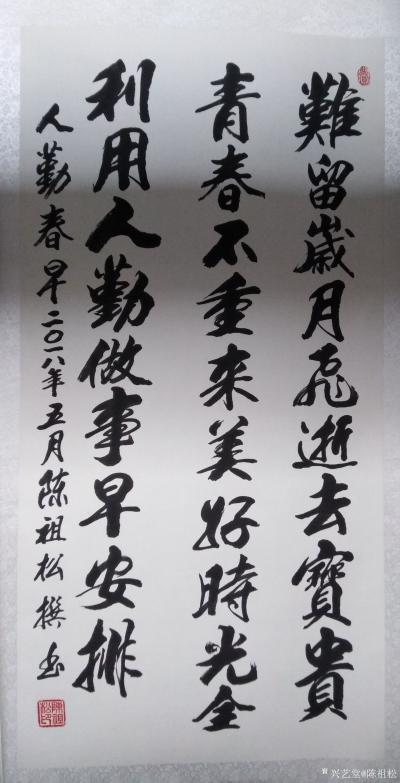 難留歲月飛逝去寶貴
青春不重来美好時光全
利用人勤做事早安排
人勤春早二〇一八年五月陈祖松撰书
兴艺堂@陈祖松